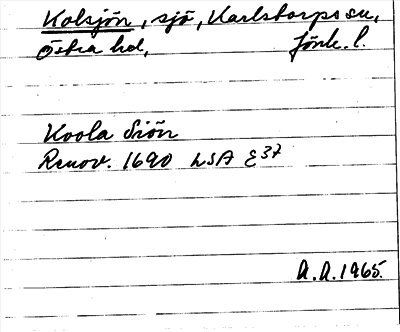 Kolsjön, sjö, Karlstorps sn,
Östra hd, Jönk. l.
Koola Siön
Renov. 1690 LSA E37
A.A. 1965.